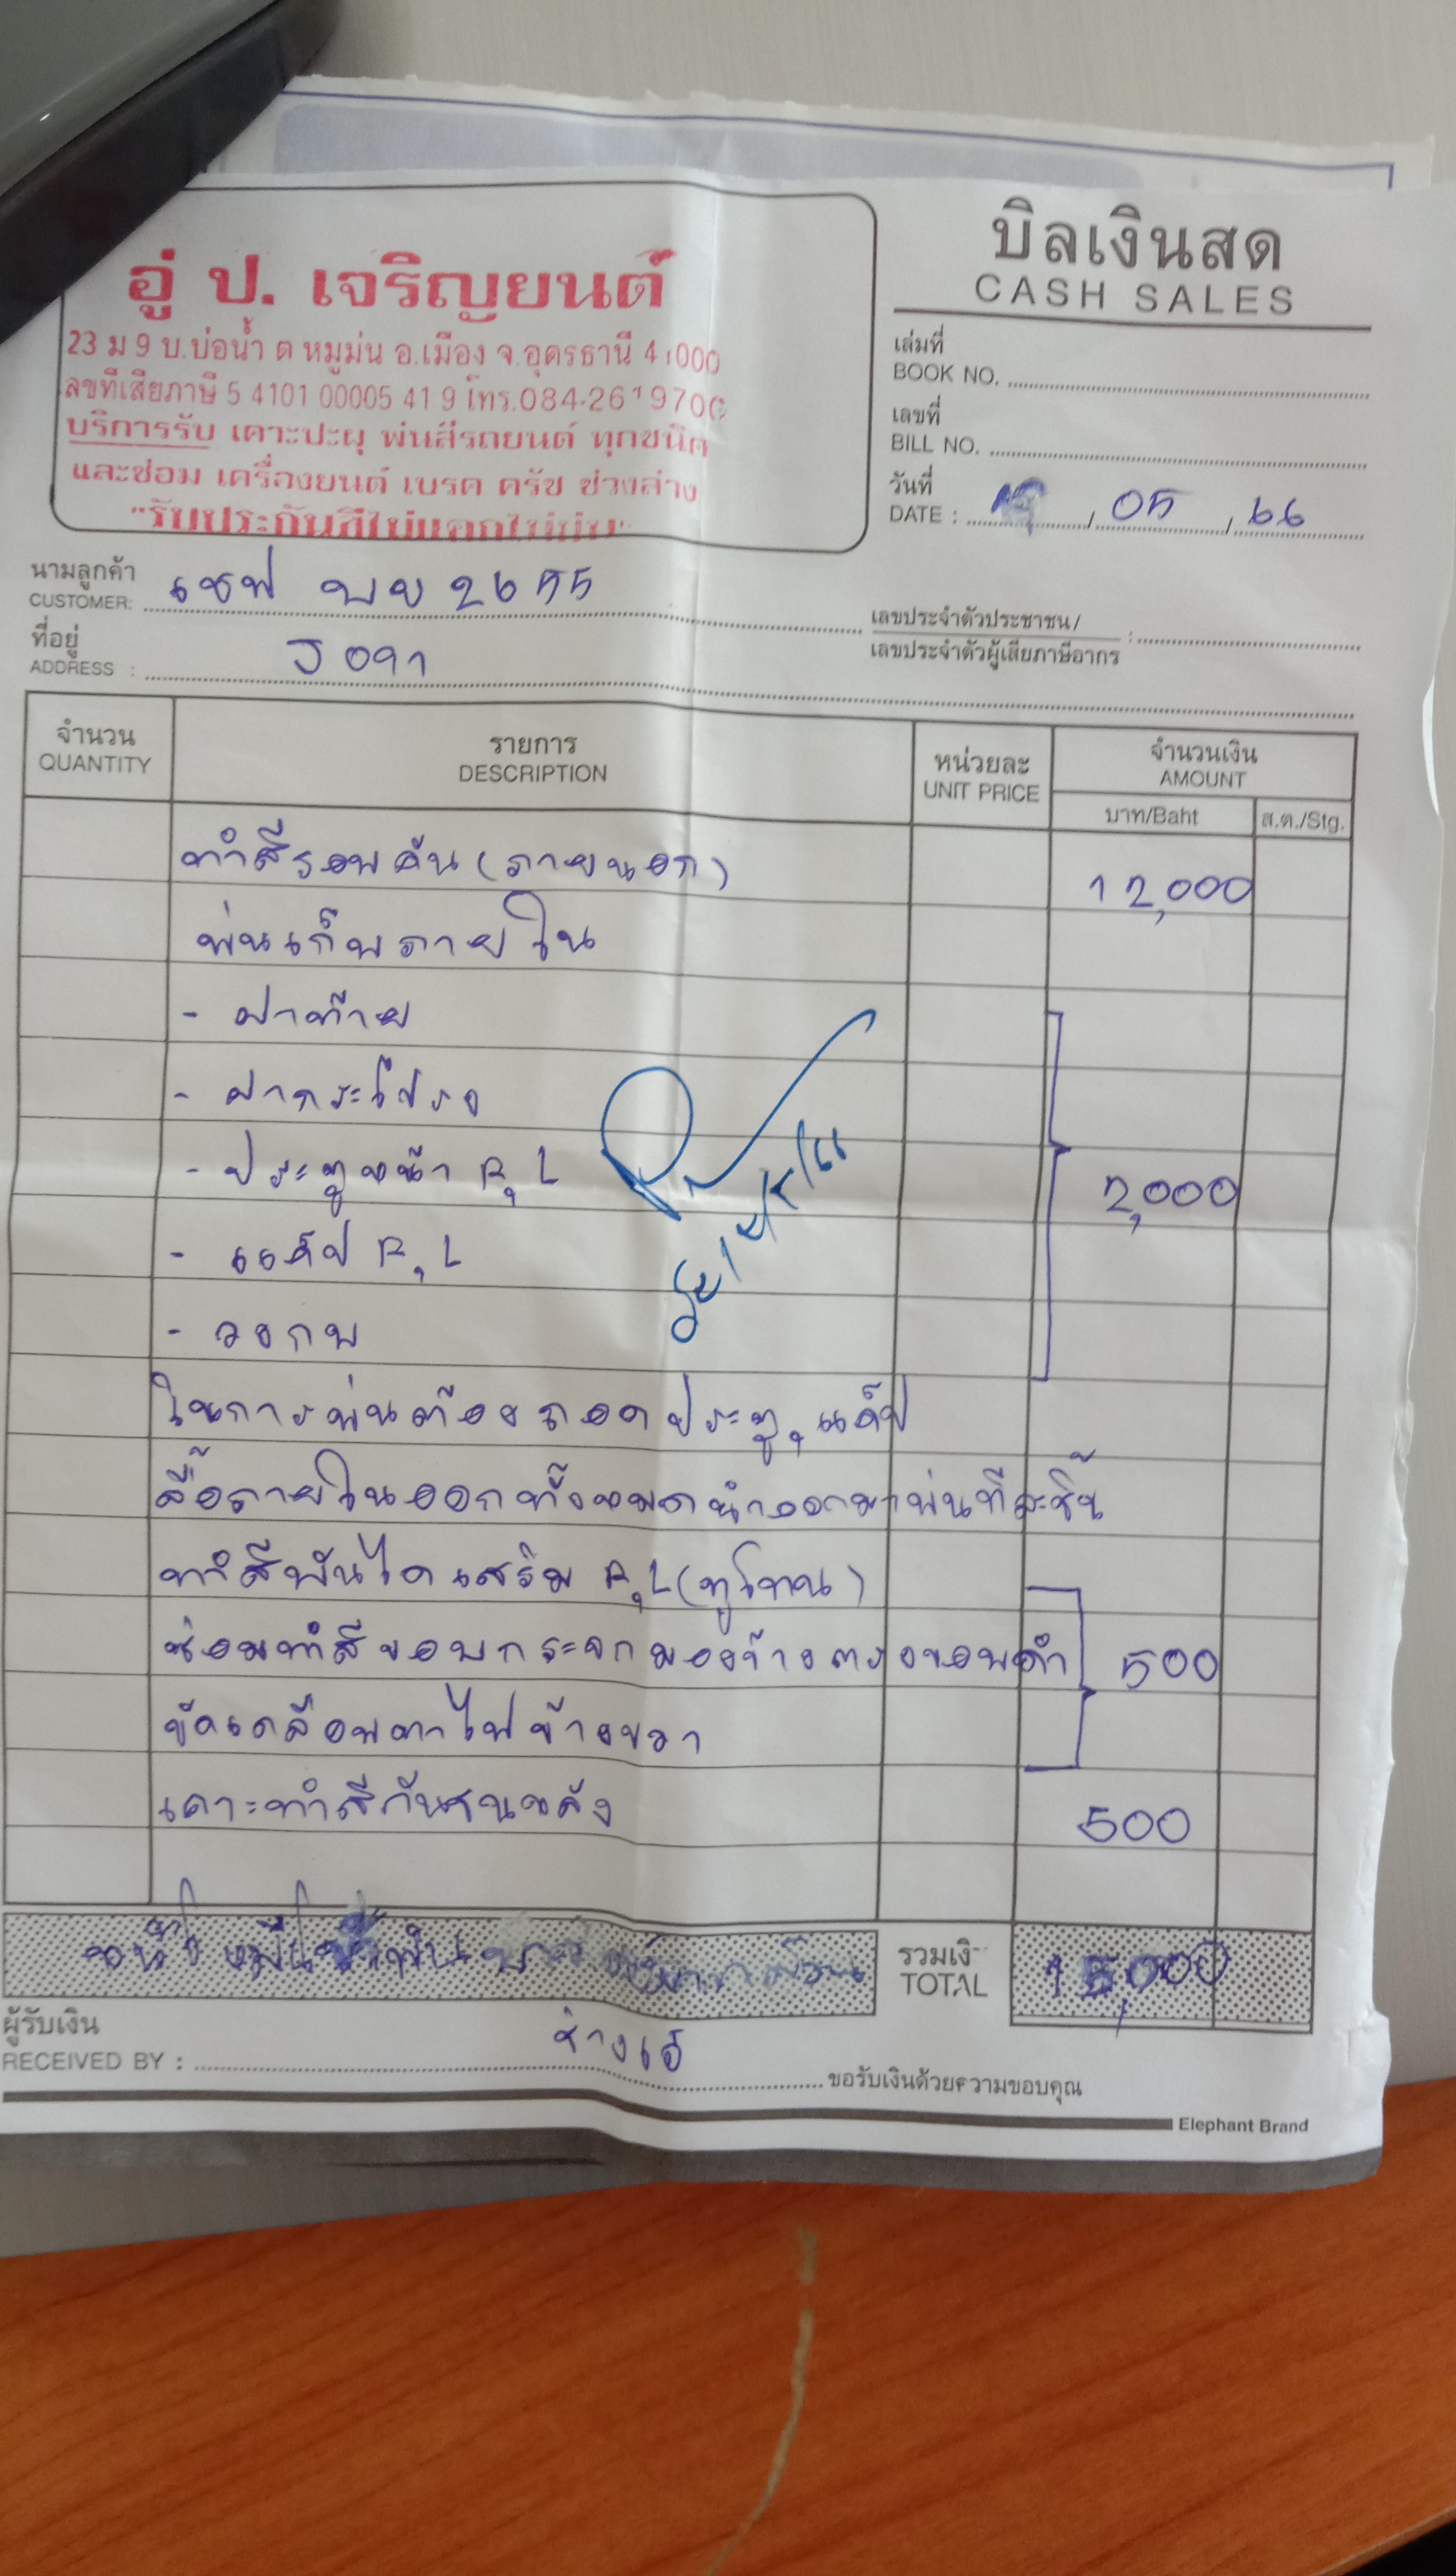 อู่ ป. เจริญยนต์
23 ม 9 บ.บ่อน้ำ ต หมูม่น อ.เมือง จ.อุดรธานี 41000
ลขที่เสียภาษี 5 4101 00005 41 9 โทร.084-261970
บริการรับ เคาะปะผุ พ่นสีรถยนต์ ทุกชนิด
และซ่อม เครื่องยนต์ เบรค ครัช ช่วงล่าง
"รับประกันสีไม่แตกไม่ม่น"
บิลเงินสด
CASH SALES
เล่มที่
BOOK NO.
เลขที่
BILL NO.
วันที่
DATE : / 05 / 66
นามลูกค้า
CUSTOMER: เชฟ บย 2655
ที่อยู่
ADDRESS : J 091
เลขประจำตัวประชาชน/ :
เลขประจำตัวผู้เสียภาษีอากร
จำนวน รายการ หน่วยละ จำนวนเงิน
QUANTITY DESCRIPTION UNIT PRICE AMOUNT
บาท/Baht ส.ต./Stg.
ทำสีรอบคัน (ภายนอก) 12,000
พ่นเก็บภายใน
- ฝาท้าย
- ฝากระโปรง
- ประตูหน้า R, L 2,000
- แค๊ป R, L
- วงกบ
ในการพ่นต้องถอดประตู, แค๊ป
สื้อภายในออกทั้งหมดนำออกมาพ่นทีละชิ้น
ทำสีบันไดเสริม R, L (ทูโทน)
ซ่อมทำสีขอบกระจกมองข้างตรงขอบดำ 500
ขัดเคลือบตาไฟข้างขวา
เคาะทำสีกันชนหลัง 500
รวมเงิ
TOTAL 15,000
ผู้รับเงิน
RECEIVED BY : ช่างเอ๋
ขอรับเงินด้วยความขอบคุณ
Elephant Brand